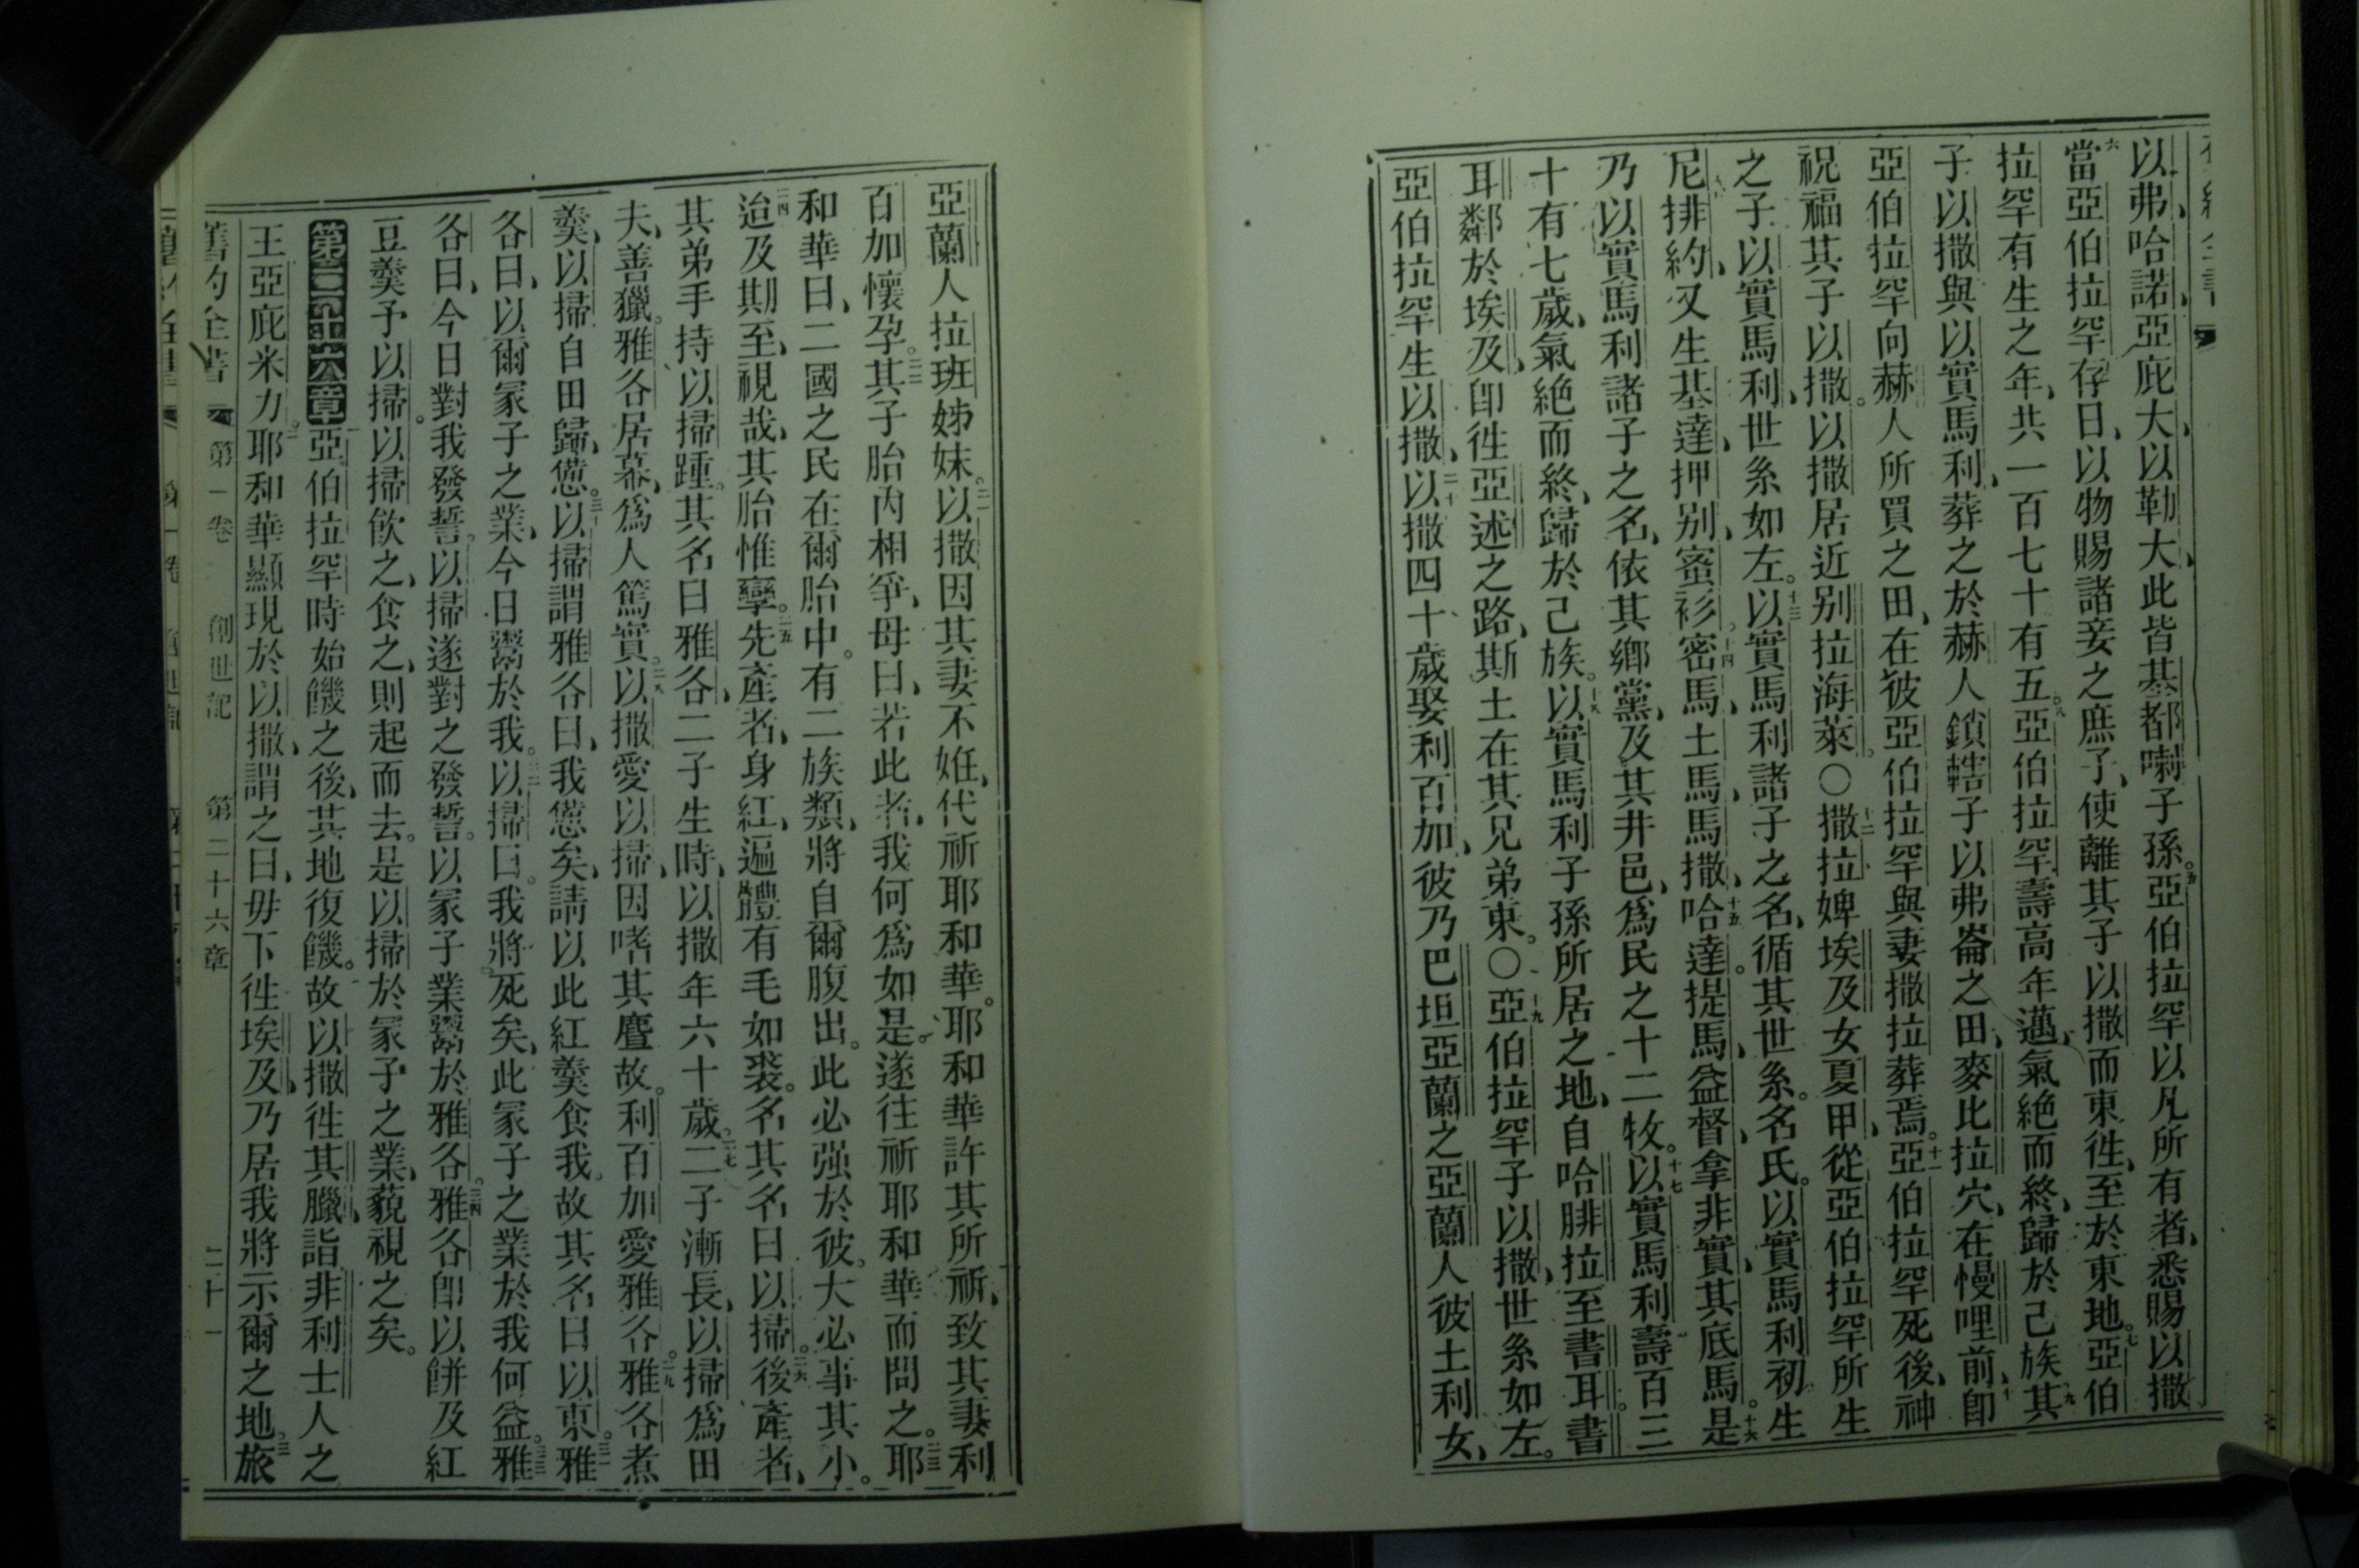 以弗、哈諾、亞庇大、以勒大、此皆基都喇子孫。五亞伯拉罕以凡所有者、悉賜以撒
六當亞伯拉罕存日、以物賜諸妾之庶子、使離其子以撒而東徃、至於東地。七亞伯
拉罕有生之年、共一百七十有五。八亞伯拉罕壽高年邁、氣絕而終、歸於己族、九其
子以撒與以實馬利、葬之於赫人鎖轄子以弗崙之田、麥比拉穴、在慢哩前、十卽
亞伯拉罕向赫人所買之田、在彼亞伯拉罕與妻撒拉葬焉。十一亞伯拉罕死後、神
祝福其子以撒。以撒居近别拉海萊。○十二撒拉婢埃及女夏甲、從亞伯拉罕所生
之子以實馬利、世系如左。十三以實馬利諸子之名、循其世系。名氏。以實馬利初生
尼排約、又生基達、押别、蜜衫、十四密馬、土馬、馬撒、十五哈達。提馬、益督、拿非實、其底馬。十六是
乃以實馬利諸子之名、依其鄉黨、及其井邑、爲民之十二牧。十七以實馬利壽百三
十有七歲、氣絕而終、歸於己族。十八以實馬利子孫所居之地、自哈腓拉至書耳。書
耳鄰於埃及、卽徃亞述之路、斯土在其兄弟東。○十九亞伯拉罕子以撒、世系如左。
亞伯拉罕生以撒、二十以撒四十歲娶利百加、彼乃巴坦亞蘭之亞蘭人彼土利女、
亞蘭人拉班姊妹。二一以撒因其妻不姙、代祈耶和華。耶和華許其所祈、致其妻利
百加懷孕。二二其子胎內相爭、母曰、若此者、我何爲如是。遂往祈耶和華而問之。二三耶
和華曰、二國之民在爾胎中。有二族類、將自爾腹出。此必强於彼。大必事其小。
二四迨及期至、視哉、其胎惟孿。二五先產者、身紅、遍體有毛如裘。名其名曰以掃。二六後產者、
其弟手持以掃踵。其名曰雅各、二子生時、以撒年六十歲。二七二子漸長、以掃爲田
夫、善獵。雅各居幕、爲人篤實。二八以撒愛以掃、因嗜其麞故。利百加愛雅各。二九雅各煮
羹、以掃自田歸、憊。三十以掃謂雅各曰、我憊矣、請以此紅羹食我。故其名曰以東。三一雅
各曰、以爾冢子之業、今日鬻於我。三二以掃曰。我將死矣、此冢子之業於我何益。三三雅
各曰、今日對我發誓。以掃遂對之發誓。以冢子業鬻於雅各。三四雅各卽以餅及紅
豆羹予以掃。以掃飮之、食之、則起而去。是以掃於冢子之業、藐視之矣。
第二十六章 一亞伯拉罕時始饑之後、其地復饑。故以撒徃其臘、詣非利士人之
王亞庇米力。二耶和華顯現於以撒、謂之曰、毋下徃埃及、乃居我將示爾之地。三旅
舊約全書 第一卷 創世記 第二十六章 二十一